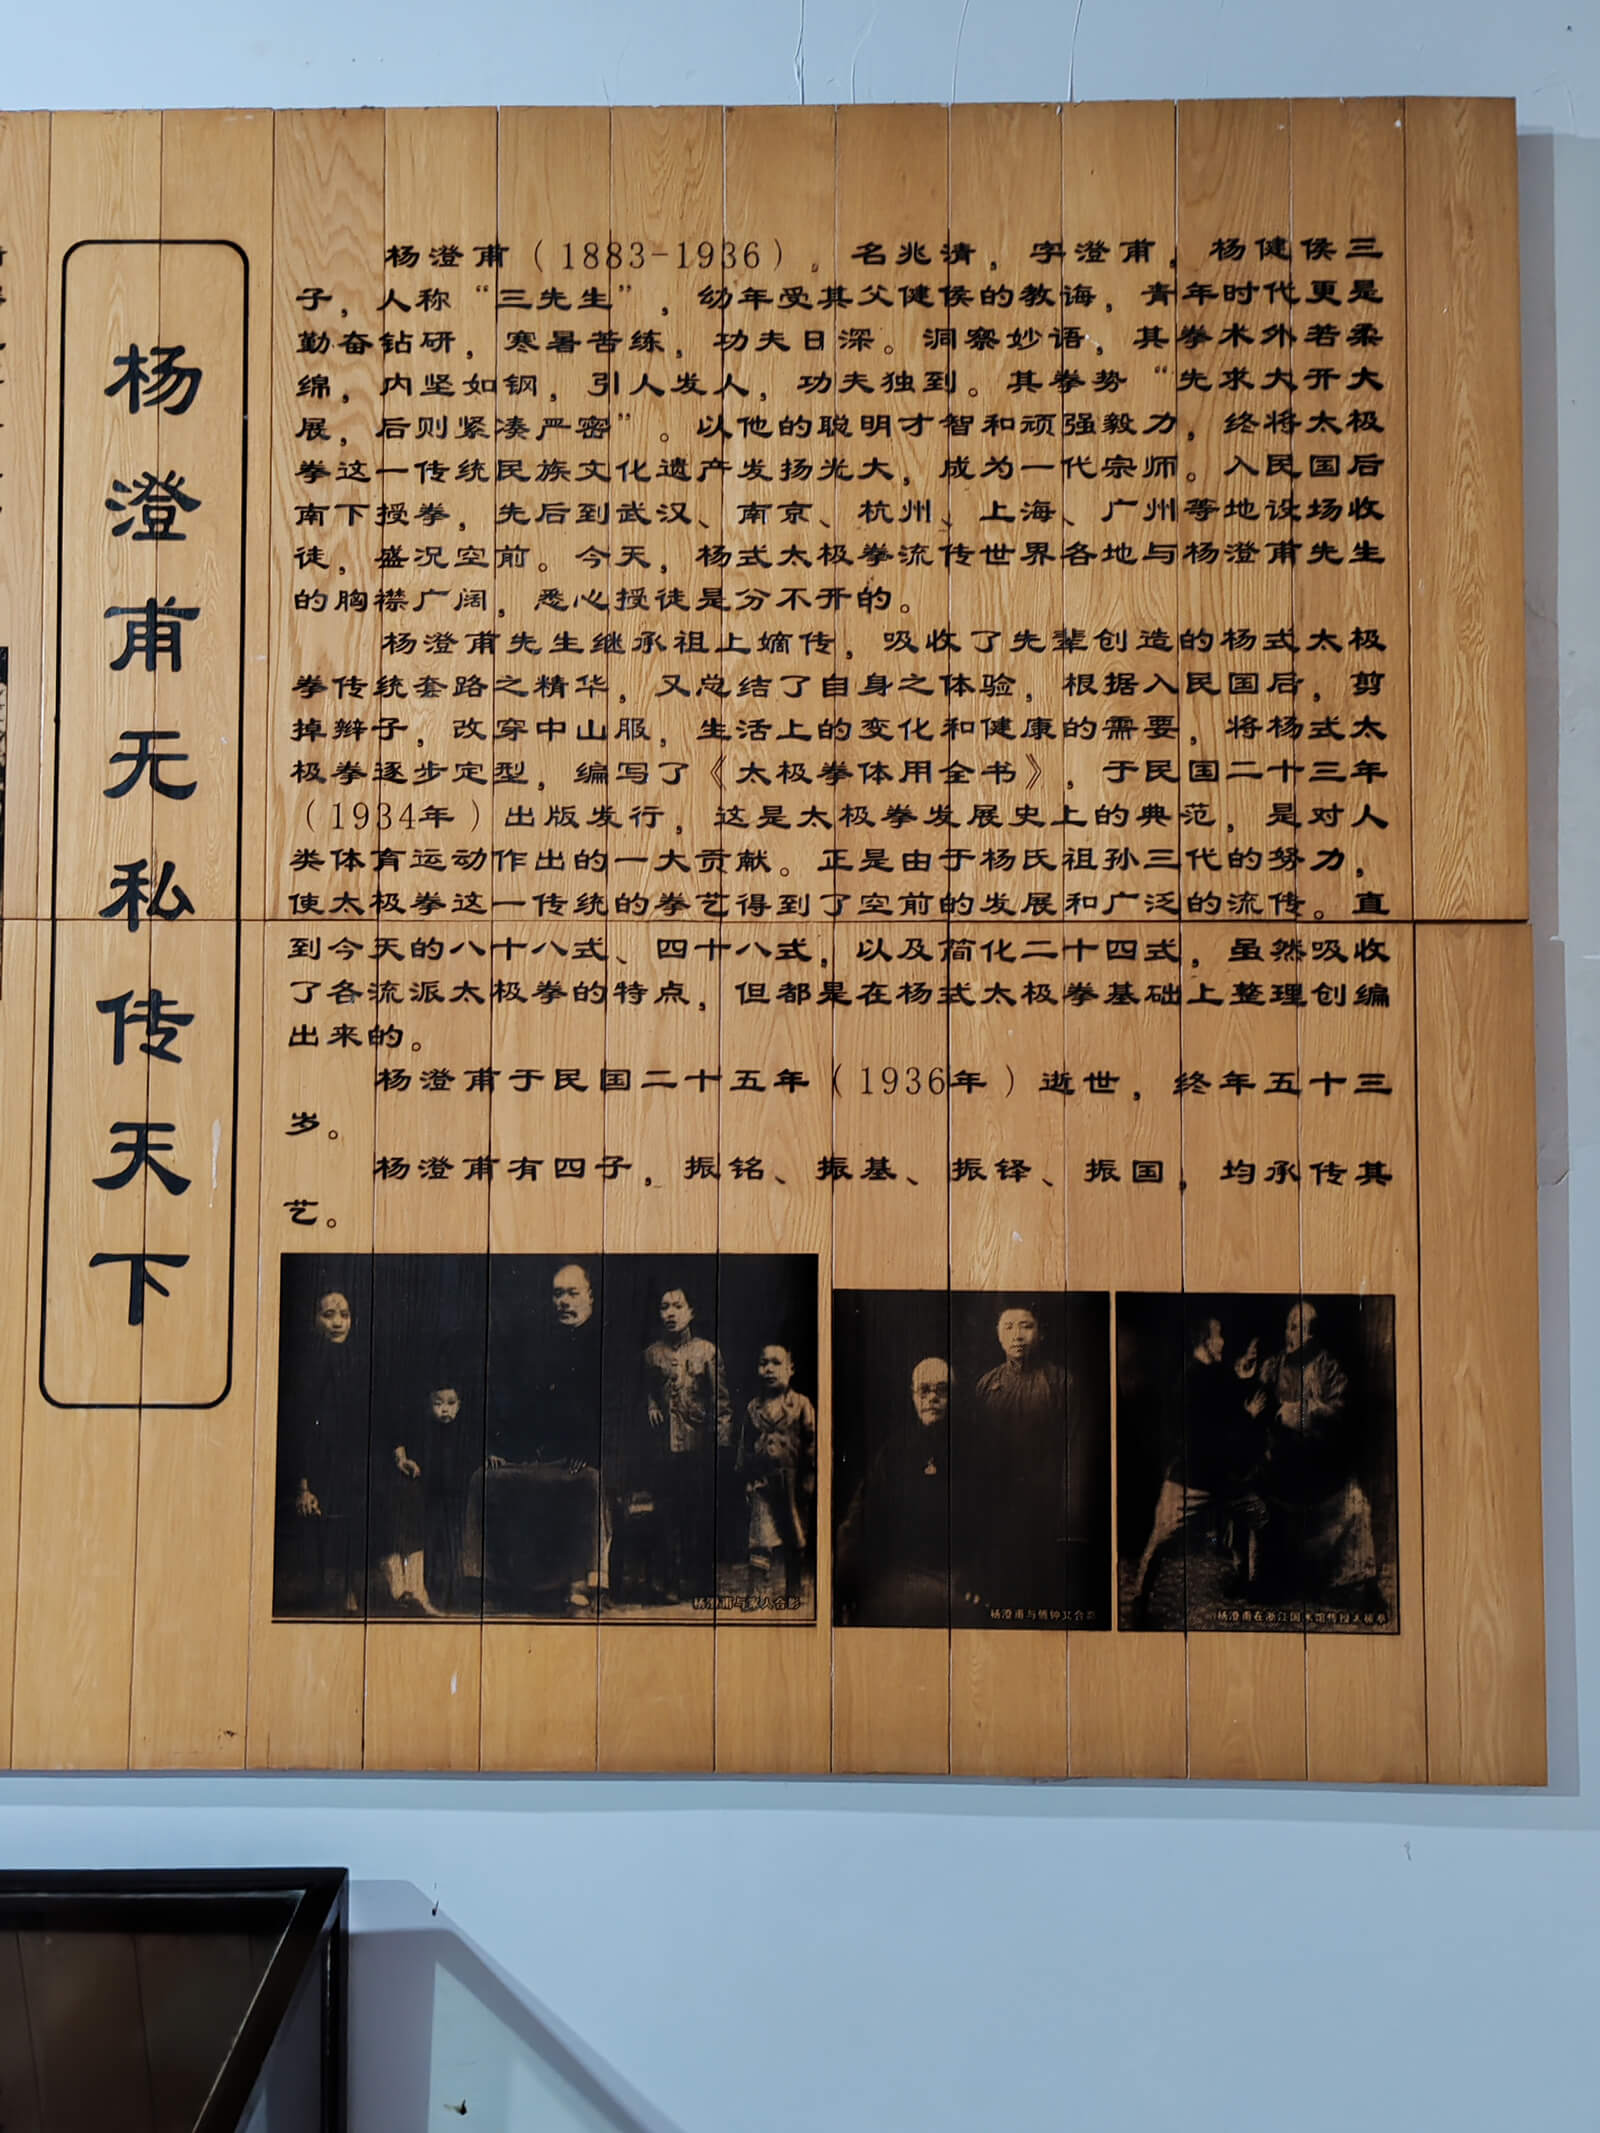 杨澄甫无私传天下
杨澄甫(1883-1936)，名兆清，字澄甫，杨健侯三
子，人称“三先生”，幼年受其父健侯的教诲，青年时代更是
勤奋钻研，寒暑苦练，功夫日深。洞察妙语，其拳术外若柔
绵，内坚如钢，引人发人，功夫独到。其拳势“先求大开大
展，后则紧凑严密”。以他的聪明才智和顽强毅力，终将太极
拳这一传统民族文化遗产发扬光大，成为一代宗师。入民国后
南下授拳，先后到武汉、南京、杭州、上海、广州等地设场收
徒，盛况空前。今天，杨式太极拳流传世界各地与杨澄甫先生
的胸襟广阔，悉心授徒是分不开的。
杨澄甫先生继承祖上嫡传，吸收了先辈创造的杨式太极
拳传统套路之精华，又总结了自身之体验，根据入民国后，剪
掉辫子，改穿中山服，生活上的变化和健康的需要，将杨式太
极拳逐步定型，编写了《太极拳体用全书》，于民国二十三年
(1934年)出版发行，这是太极拳发展史上的典范，是对人
类体育运动作出的一大贡献。正是由于杨氏祖孙三代的努力，
使太极拳这一传统的拳艺得到了空前的发展和广泛的流传。直
到今天的八十八式、四十八式，以及简化二十四式，虽然吸收
了各流派太极拳的特点，但都是在杨式太极拳基础上整理创编
出来的。
杨澄甫于民国二十五年(1936年)逝世，终年五十三
岁。
杨澄甫有四子，振铭、振基、振铎、振国，均承传其
艺。
杨澄甫与家人合影
杨澄甫与傅钟文合影
杨澄甫在浙江国术馆传授太极拳